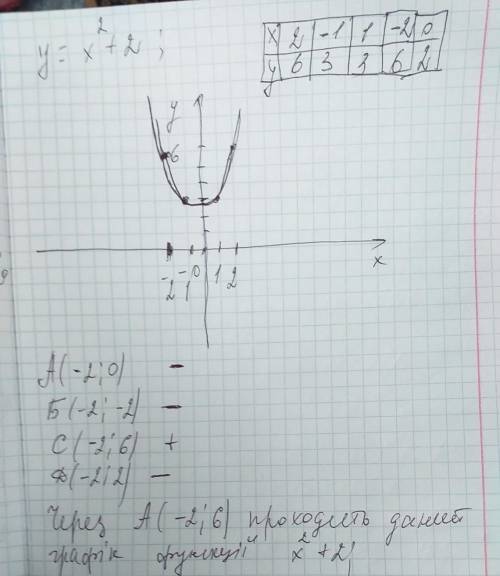 y = x² + 2 ;
x 2 -1 1 -2 0
y 6 3 3 6 2
y
6
-2 -1 0 1 2
x
А(-2; 0) -
Б(-2; -2) -
С(-2; 6) +
Ф(-2; 2) -
Через А(-2; 6) проходить даний
графік функції x² + 2;